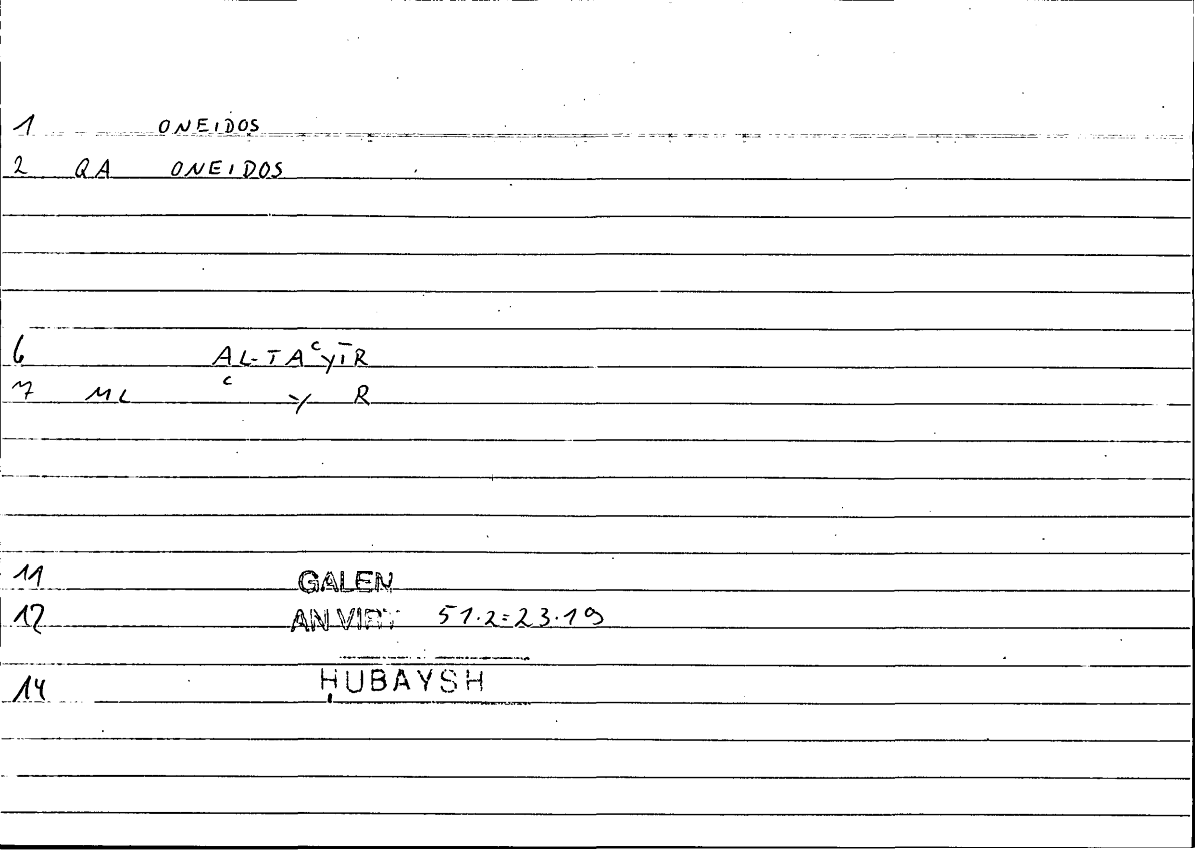 1 ONEIDOS
2 QA ONEIDOS
6 AL-TAᶜYĪR
7 ML ᶜ Y R
11 GALEN
12 AN VIRT 51.2=23.19
14 ḤUBAYSH